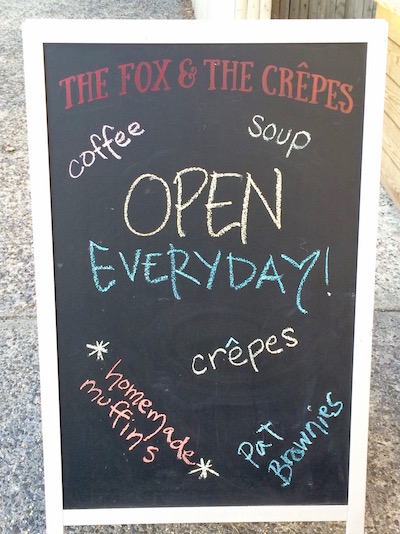 THE FOX & THE CRÊPES
coffee
soup
OPEN
EVERYDAY!
crêpes
homemade
muffins
Pat
Brownies